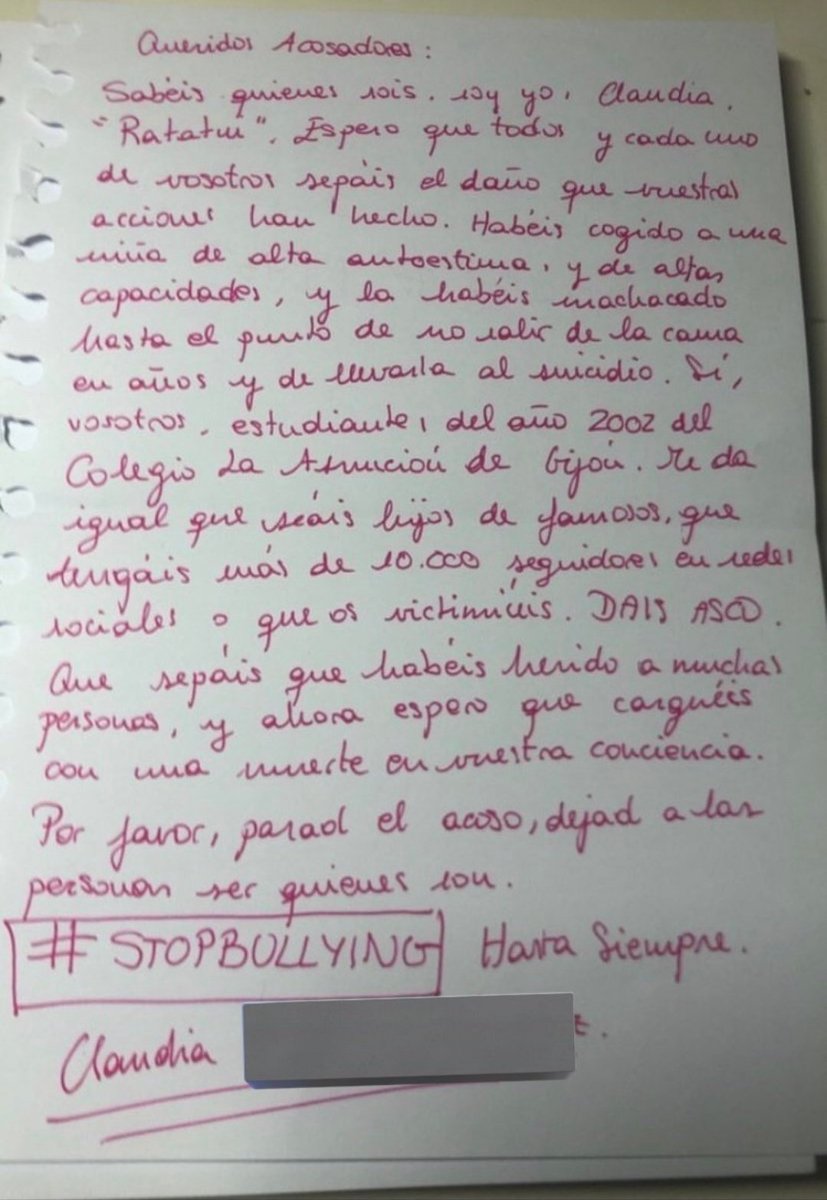 Queridos Acosadores:
Sabéis quienes sois. soy yo, Claudia.
"Ratatui". Espero que todos y cada uno
de vosotros sepáis el daño que vuestras
acciones han hecho. Habéis cogido a una
niña de alta autoestima, y de altas
capacidades, y la habéis machacado
hasta el punto de no salir de la cama
en años y de llevarla al suicidio. Sí,
vosotros, estudiantes del año 2002 del
Colegio La Asunción de Gijón. Me da
igual que seáis hijos de famosos, que
tengáis más de 10.000 seguidores en redes
sociales o que os victimicéis. DAIS ASCO.
Que sepáis que habéis herido a muchas
personas, y ahora espero que carguéis
con una muerte en vuestra conciencia.
Por favor, parad el acoso, dejad a las
personas ser quienes son.
#STOPBULLYING Hasta Siempre.
Claudia